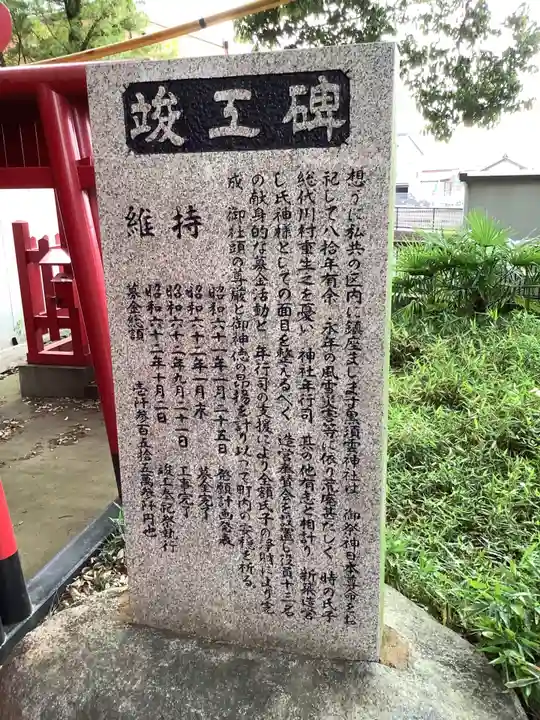 竣工碑
想うに私共の区内に鎮座まします黒須雲神社は 御祭神日本尊命をお
祀して八拾年有余 永年の風雪災害等に依り荒廃甚だしく 時の氏子
総代川村重生之を憂い 神社年行司 其の他有志と相計り 新版造営
し氏神様としての面目を整えるべく 造営奉賛会を設置し役員十二名
の献身的な募金活動と 年行司の支援により全額氏子の浄財により完
成 御社頭の尊厳と御神徳の昂揚を計り以って町内の安穏を祈る
維持
昭和六十一年一月二十五日 発願計画発議
昭和六十二年一月末 募金完了
昭和六十二年九月二十一日 工事完了
昭和六十二年十月一日 竣工祭記挙執行
募金総額 壱什参百五拾五萬参阡円也